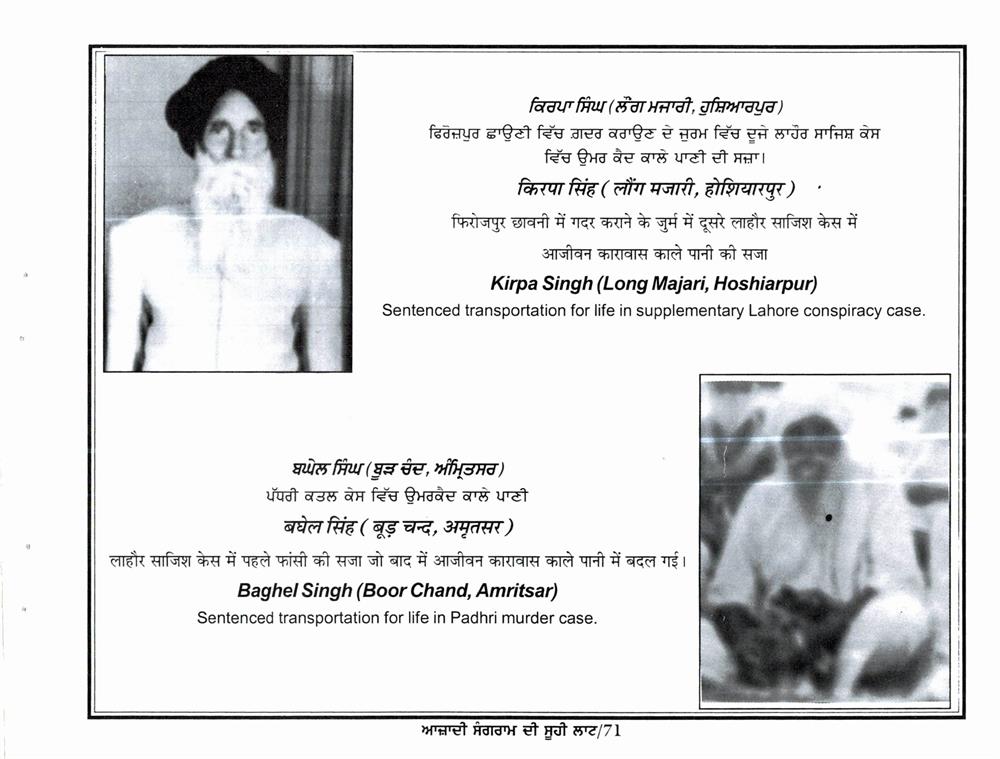 ਕਿਰਪਾ ਸਿੰਘ (ਲੌਂਗ ਮਜਾਰੀ, ਹੁਸ਼ਿਆਰਪੁਰ)
ਫਿਰੋਜ਼ਪੁਰ ਛਾਉਣੀ ਵਿੱਚ ਗ਼ਦਰ ਕਰਾਉਣ ਦੇ ਜੁਰਮ ਵਿੱਚ ਦੂਜੇ ਲਾਹੌਰ ਸਾਜਿਸ਼ ਕੇਸ
ਵਿੱਚ ਉਮਰ ਕੈਦ ਕਾਲੇ ਪਾਣੀ ਦੀ ਸਜ਼ਾ।
किरपा सिंह ( लौंग मजारी, होशियारपुर )
फिरोजपुर छावनी में गदर कराने के जुर्म में दूसरे लाहौर साजिश केस में
आजीवन कारावास काले पानी की सजा
Kirpa Singh (Long Majari, Hoshiarpur)
Sentenced transportation for life in supplementary Lahore conspiracy case.
ਬਘੇਲ ਸਿੰਘ (ਬੂੜ ਚੰਦ, ਅੰਮ੍ਰਿਤਸਰ)
ਪੱਧਰੀ ਕਤਲ ਕੇਸ ਵਿੱਚ ਉਮਰਕੈਦ ਕਾਲੇ ਪਾਣੀ
बघेल सिंह ( बूड़ चन्द, अमृतसर )
लाहौर साजिश केस में पहले फांसी की सजा जो बाद में आजीवन कारावास काले पानी में बदल गई।
Baghel Singh (Boor Chand, Amritsar)
Sentenced transportation for life in Padhri murder case.
ਆਜ਼ਾਦੀ ਸੰਗਰਾਮ ਦੀ ਸੂਹੀ ਲਾਟ/71